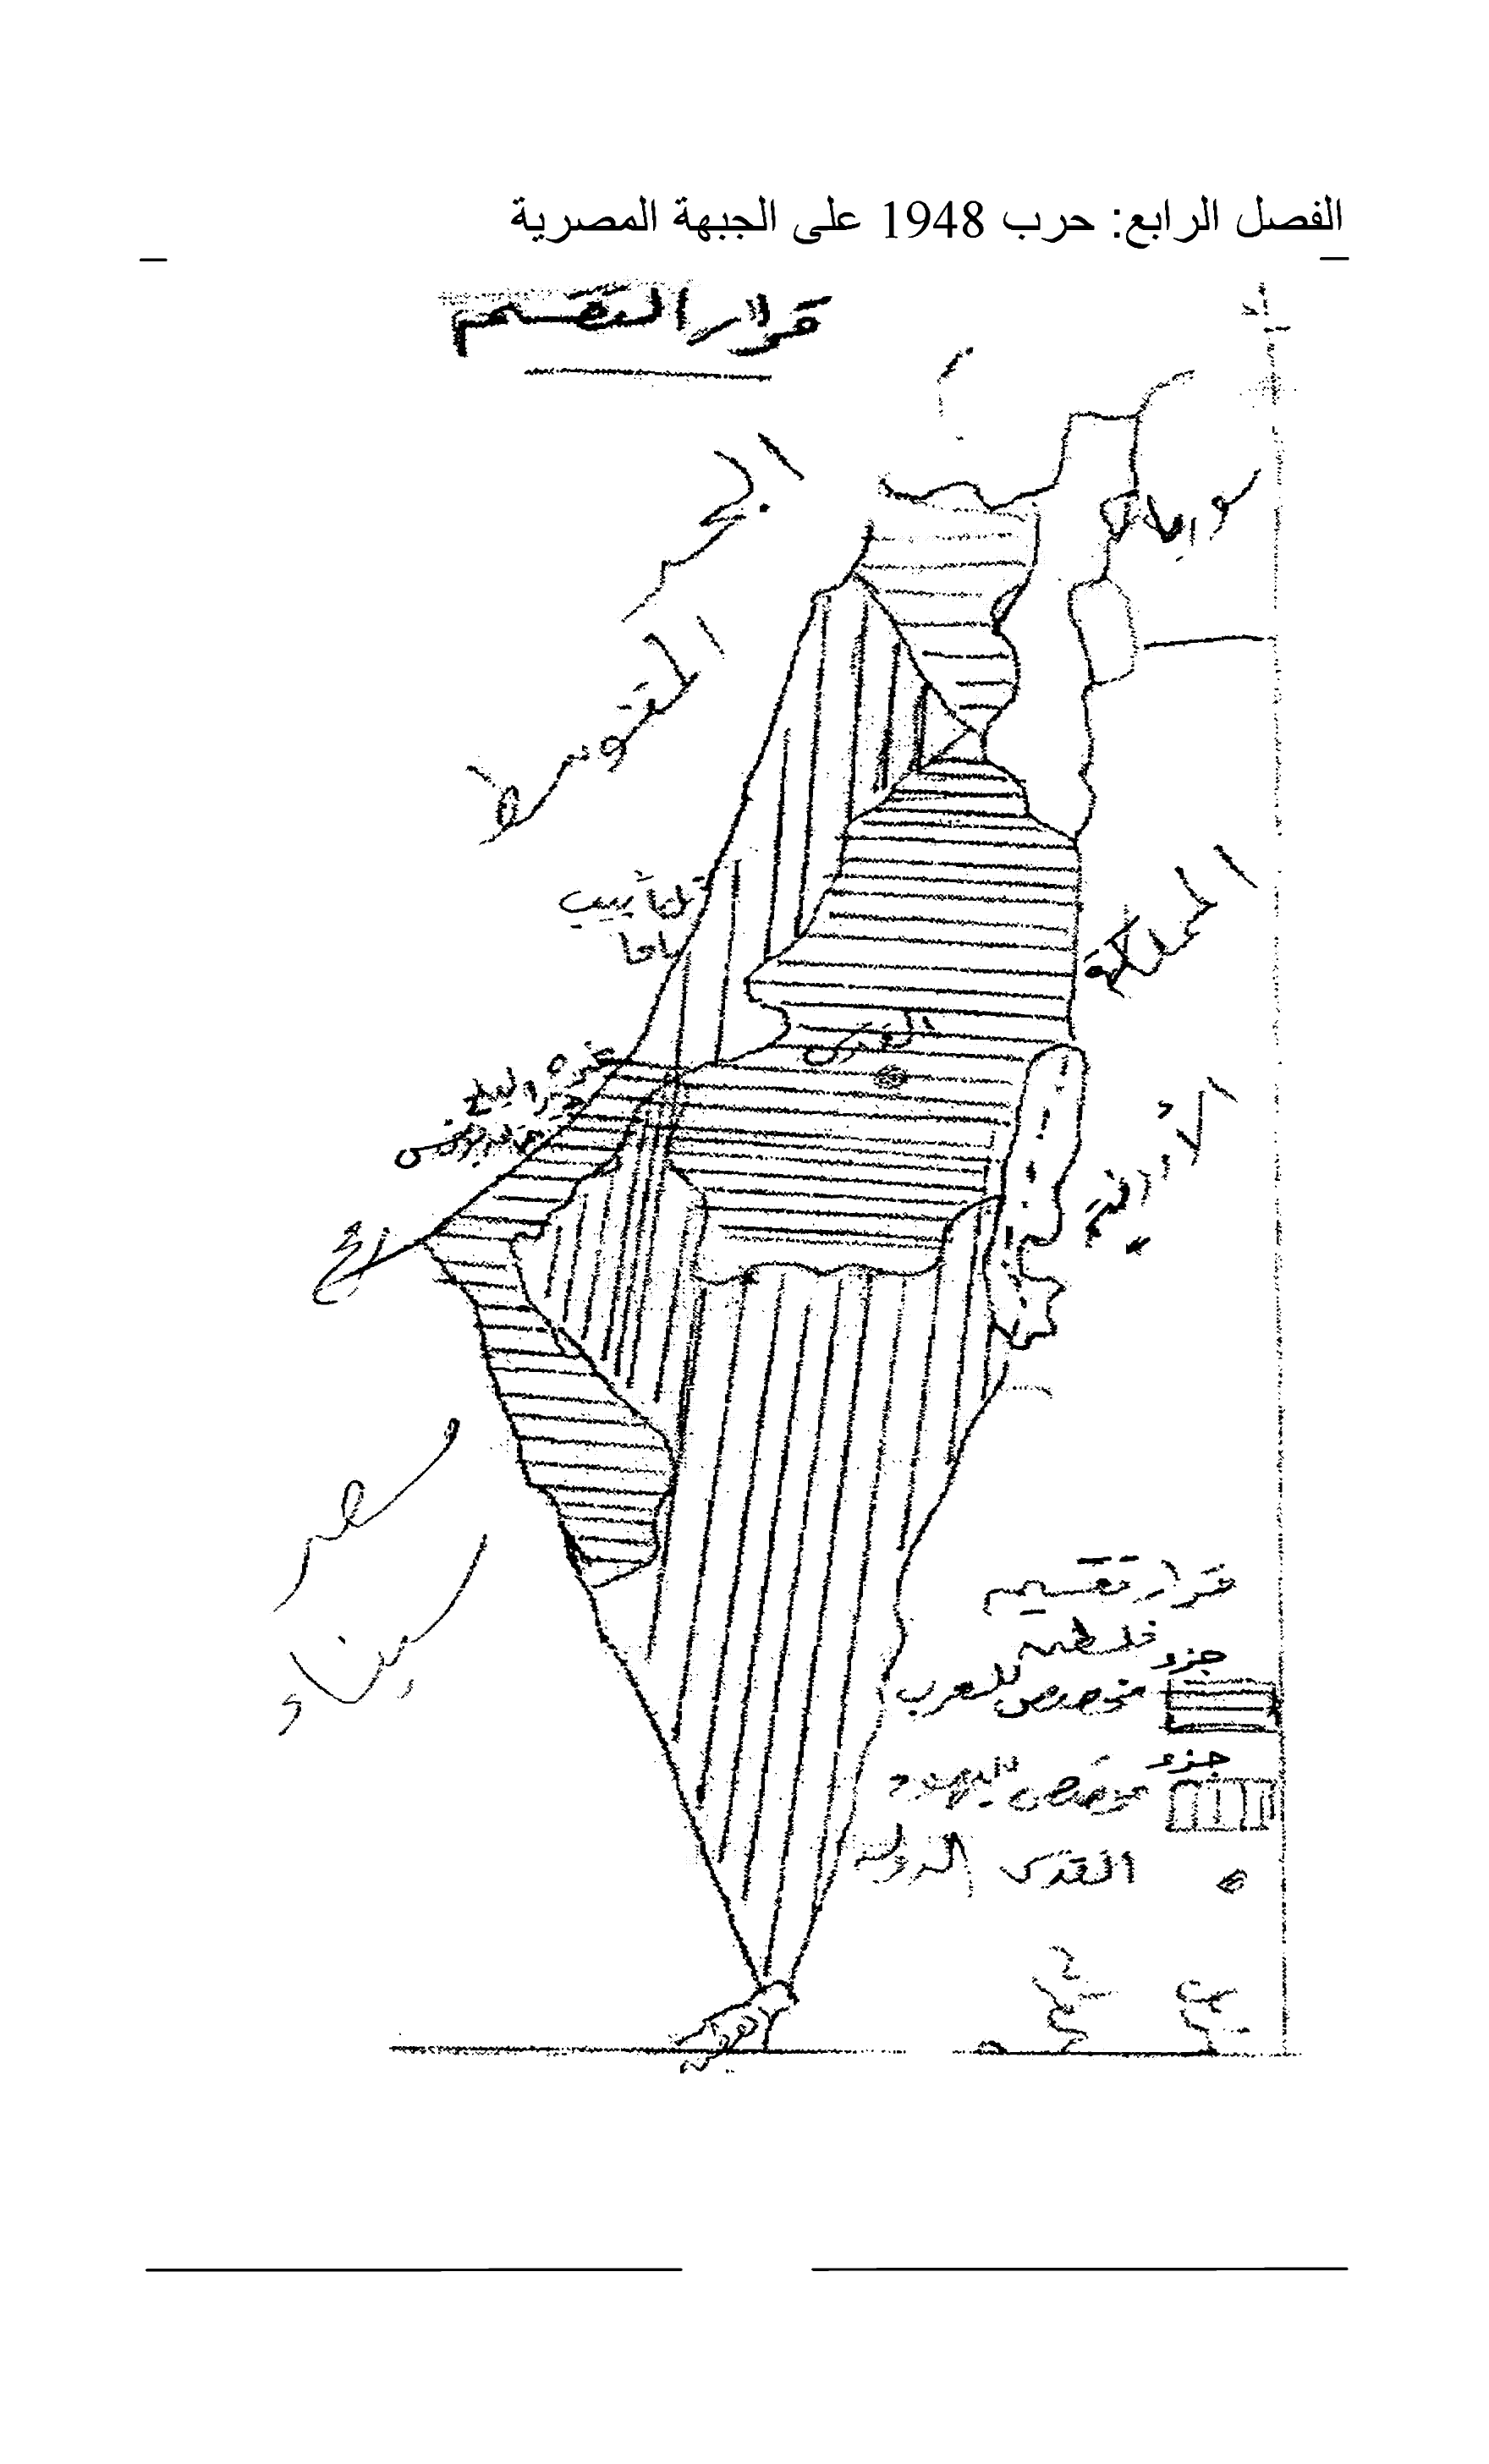 الفصل الرابع: حرب 1948 على الجبهة المصرية
قرار التقسيم
البحر
المتوسط
سوريا
تل أبيب
يافا
المملكة
الأردنية
القدس
غزة
رفح
مصر
سيناء
قرار تقسيم
فلسطين
جزء
مخصص للعرب
جزء
مخصص لليهود
القدس الدولية